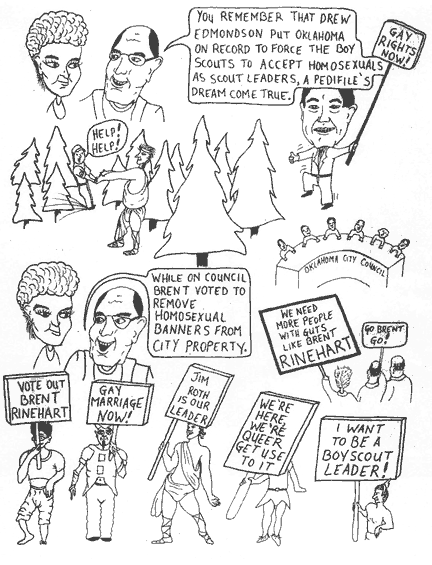 YOU REMEMBER THAT DREW
EDMONDSON PUT OKLAHOMA
ON RECORD TO FORCE THE BOY
SCOUTS TO ACCEPT HOMOSEXUALS
AS SCOUT LEADERS, A PEDIFILE'S
DREAM COME TRUE.
GAY
RIGHTS
NOW!
HELP!
HELP!
OKLAHOMA CITY COUNCIL
WHILE ON COUNCIL
BRENT VOTED TO
REMOVE
HOMOSEXUAL
BANNERS FROM
CITY PROPERTY.
WE NEED
MORE PEOPLE
WITH GUTS
LIKE BRENT
RINEHART
GO BRENT
GO!
VOTE OUT
BRENT
RINEHART
GAY
MARRIAGE
NOW!
JIM
ROTH
IS OUR
LEADER
WE'RE
HERE
WE'RE
QUEER
GET USE
TO IT
I WANT
TO BE A
BOYSCOUT
LEADER!